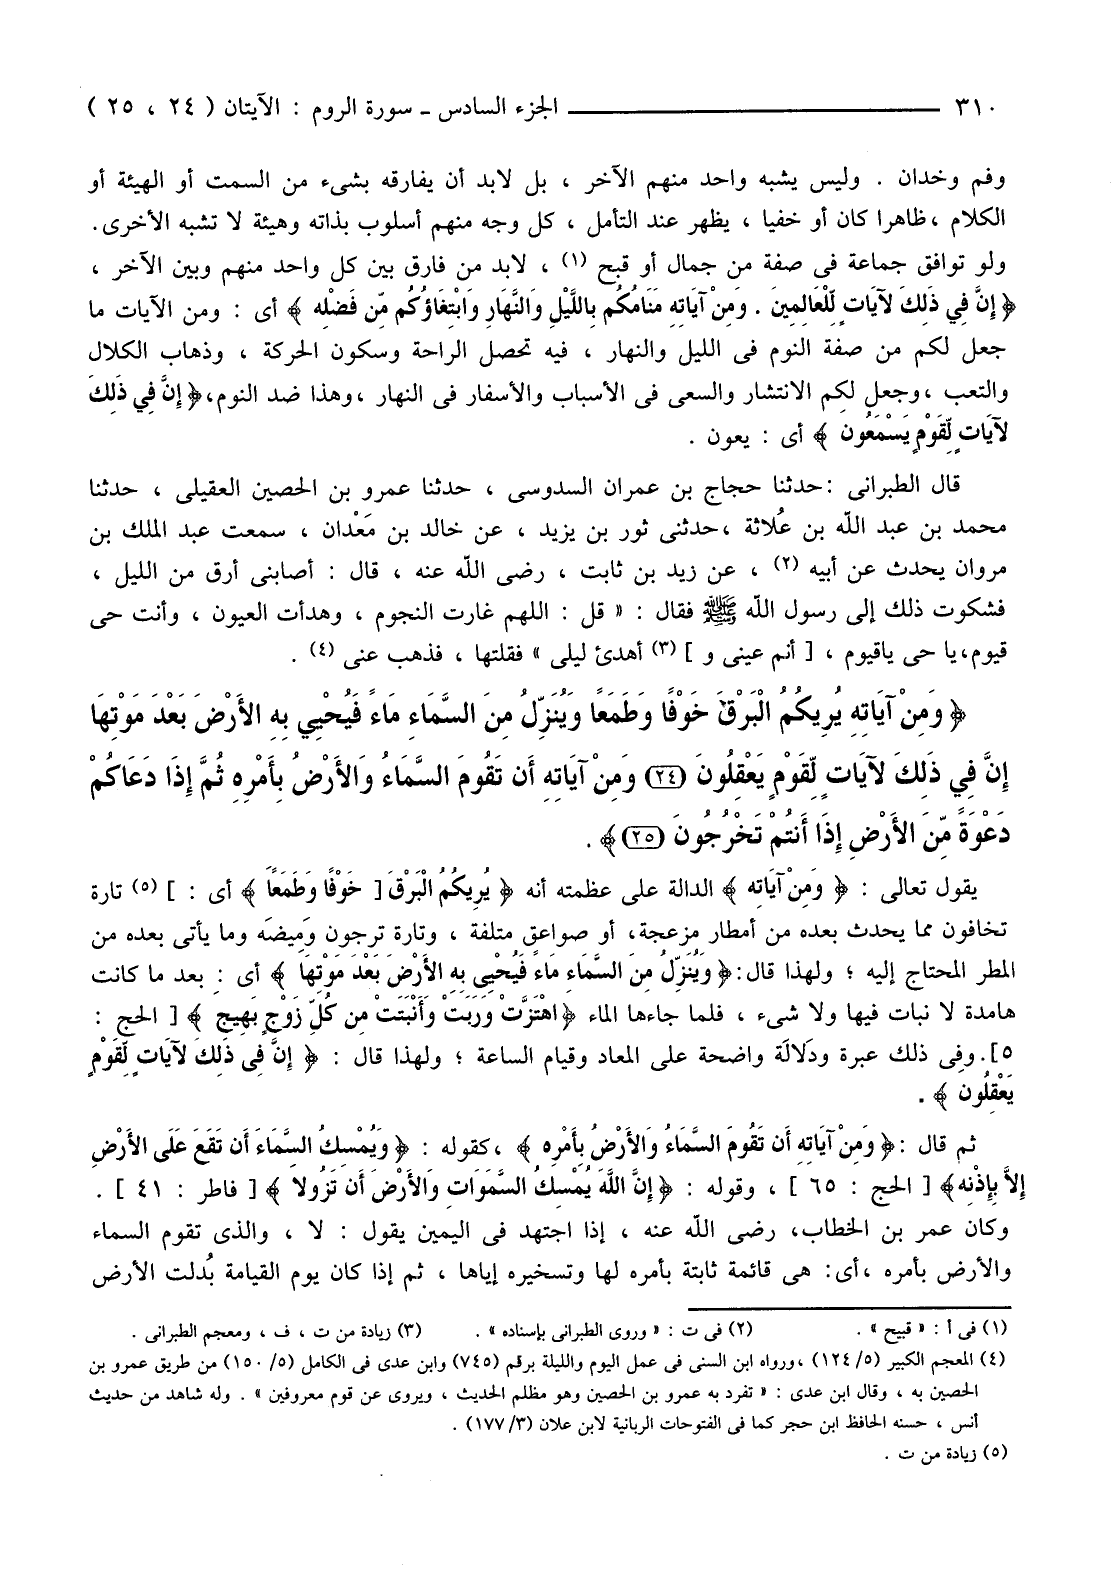 ٣١٠ ــــــــــــــ الجزء السادس ـ سورة الروم : الآيتان ( ٢٤ ، ٢٥ )
وفم وخدان . وليس يشبه واحد منهم الآخر ، بل لابد أن يفارقه بشىء من السمت أو الهيئة أو
الكلام ،ظاهرا كان أو خفيا ، يظهر عند التأمل ، كل وجه منهم أسلوب بذاته وهيئة لا تشبه الأخرى.
ولو توافق جماعة فى صفة من جمال أو قبح (١) ، لابد من فارق بين كل واحد منهم وبين الآخر ،
﴿ إِنَّ فِي ذَلِكَ لآيَاتٍ لِّلْعَالِمِينَ . وَمِنْ آيَاتِهِ مَنَامُكُم بِاللَّيْلِ وَالنَّهَارِ وَابْتِغَاؤُكُم مِّن فَضْلِهِ ﴾ أى : ومن الآيات ما
جعل لكم من صفة النوم فى الليل والنهار ، فيه تحصل الراحة وسكون الحركة ، وذهاب الكلال
والتعب ،وجعل لكم الانتشار والسعى فى الأسباب والأسفار فى النهار ،وهذا ضد النوم،﴿ إِنَّ فِي ذَلِكَ
لآيَاتٍ لِّقَوْمٍ يَسْمَعُونَ ﴾ أى : يعون .
قال الطبرانى :حدثنا حجاج بن عمران السدوسى ، حدثنا عمرو بن الحصين العقيلى ، حدثنا
محمد بن عبد اللّه بن عُلاثة ،حدثنى ثور بن يزيد ، عن خالد بن مَعْدان ، سمعت عبد الملك بن
مروان يحدث عن أبيه (٢) ، عن زيد بن ثابت ، رضى اللّه عنه ، قال : أصابنى أرق من الليل ،
فشكوت ذلك إلى رسول اللّه ﷺ فقال : « قل : اللهم غارت النجوم ، وهدأت العيون ، وأنت حى
قيوم،يا حى ياقيوم ، [ أنم عينى و ] (٣) أهدئ ليلى » فقلتها ، فذهب عنى (٤) .
﴿ وَمِنْ آيَاتِهِ يُرِيكُمُ الْبَرْقَ خَوْفًا وَطَمَعًا وَيُنَزِّلُ مِنَ السَّمَاءِ مَاءً فَيُحْيِي بِهِ الأَرْضَ بَعْدَ مَوْتِهَا
إِنَّ فِي ذَلِكَ لآيَاتٍ لِّقَوْمٍ يَعْقِلُونَ (٢٤) وَمِنْ آيَاتِهِ أَن تَقُومَ السَّمَاءُ وَالأَرْضُ بِأَمْرِهِ ثُمَّ إِذَا دَعَاكُمْ
دَعْوَةً مِّنَ الأَرْضِ إِذَا أَنتُمْ تَخْرُجُونَ (٢٥) ﴾ .
يقول تعالى : ﴿ وَمِنْ آيَاتِهِ ﴾ الدالة على عظمته أنه ﴿ يُرِيكُمُ الْبَرْقَ [ خَوْفًا وَطَمَعًا ﴾ أى : ] (٥) تارة
تخافون مما يحدث بعده من أمطار مزعجة، أو صواعق متلفة ، وتارة ترجون وَمِيضَه وما يأتى بعده من
المطر المحتاج إليه ؛ ولهذا قال:﴿ وَيُنَزِّلُ مِنَ السَّمَاءِ مَاءً فَيُحْيِي بِهِ الأَرْضَ بَعْدَ مَوْتِهَا ﴾ أى : بعد ما كانت
هامدة لا نبات فيها ولا شىء ، فلما جاءها الماء ﴿ اهْتَزَّتْ وَرَبَتْ وَأَنْبَتَتْ مِن كُلِّ زَوْجٍ بَهِيجٍ ﴾ [ الحج :
٥]. وفِى ذلك عبرة ودَلالَة واضحة على المعاد وقيام الساعة ؛ ولهذا قال : ﴿ إِنَّ فِي ذَلِكَ لآيَاتٍ لِّقَوْمٍ
يَعْقِلُونَ ﴾ .
ثم قال :﴿ وَمِنْ آيَاتِهِ أَن تَقُومَ السَّمَاءُ وَالأَرْضُ بِأَمْرِهِ ﴾ ،كقوله : ﴿ وَيُمْسِكُ السَّمَاءَ أَن تَقَعَ عَلَى الأَرْضِ
إِلاَّ بِإِذْنِهِ﴾ [ الحج : ٦٥ ] ، وقوله : ﴿ إِنَّ اللَّهَ يُمْسِكُ السَّمَوَاتِ وَالأَرْضَ أَن تَزُولا ﴾ [ فاطر : ٤١ ] .
وكان عمر بن الخطاب، رضى اللّه عنه ، إذا اجتهد فى اليمين يقول : لا ، والذى تقوم السماء
والأرض بأمره ،أى: هى قائمة ثابتة بأمره لها وتسخيره إياها ، ثم إذا كان يوم القيامة بُدلت الأرض
(١) فى أ : « قبيح » . (٢) فى ت : « وروى الطبرانى بإسناده » . (٣) زيادة من ت ، ف ، ومعجم الطبرانى .
(٤) المعجم الكبير (٥/ ١٢٤) ،ورواه ابن السنى فى عمل اليوم والليلة برقم (٧٤٥) وابن عدى فى الكامل (٥/ ١٥٠) من طريق عمرو بن
الحصين به ، وقال ابن عدى : « تفرد به عمرو بن الحصين وهو مظلم الحديث ، ويروى عن قوم معروفين » . وله شاهد من حديث
أنس ، حسنه الحافظ ابن حجر كما فى الفتوحات الربانية لابن علان (٣/ ١٧٧) .
(٥) زيادة من ت .